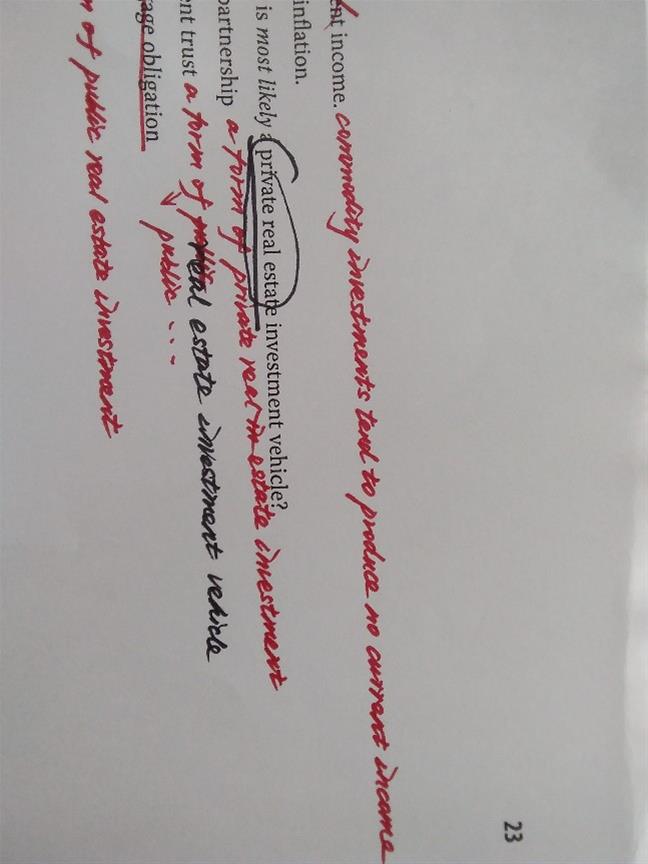 23
income. commodity investments tend to produce no current income
inflation.
is most likely a private real estate investment vehicle?
partnership a form of private real estate investment
trust a form of real estate investment vehicle
public ...
obligation
of public real estate investment